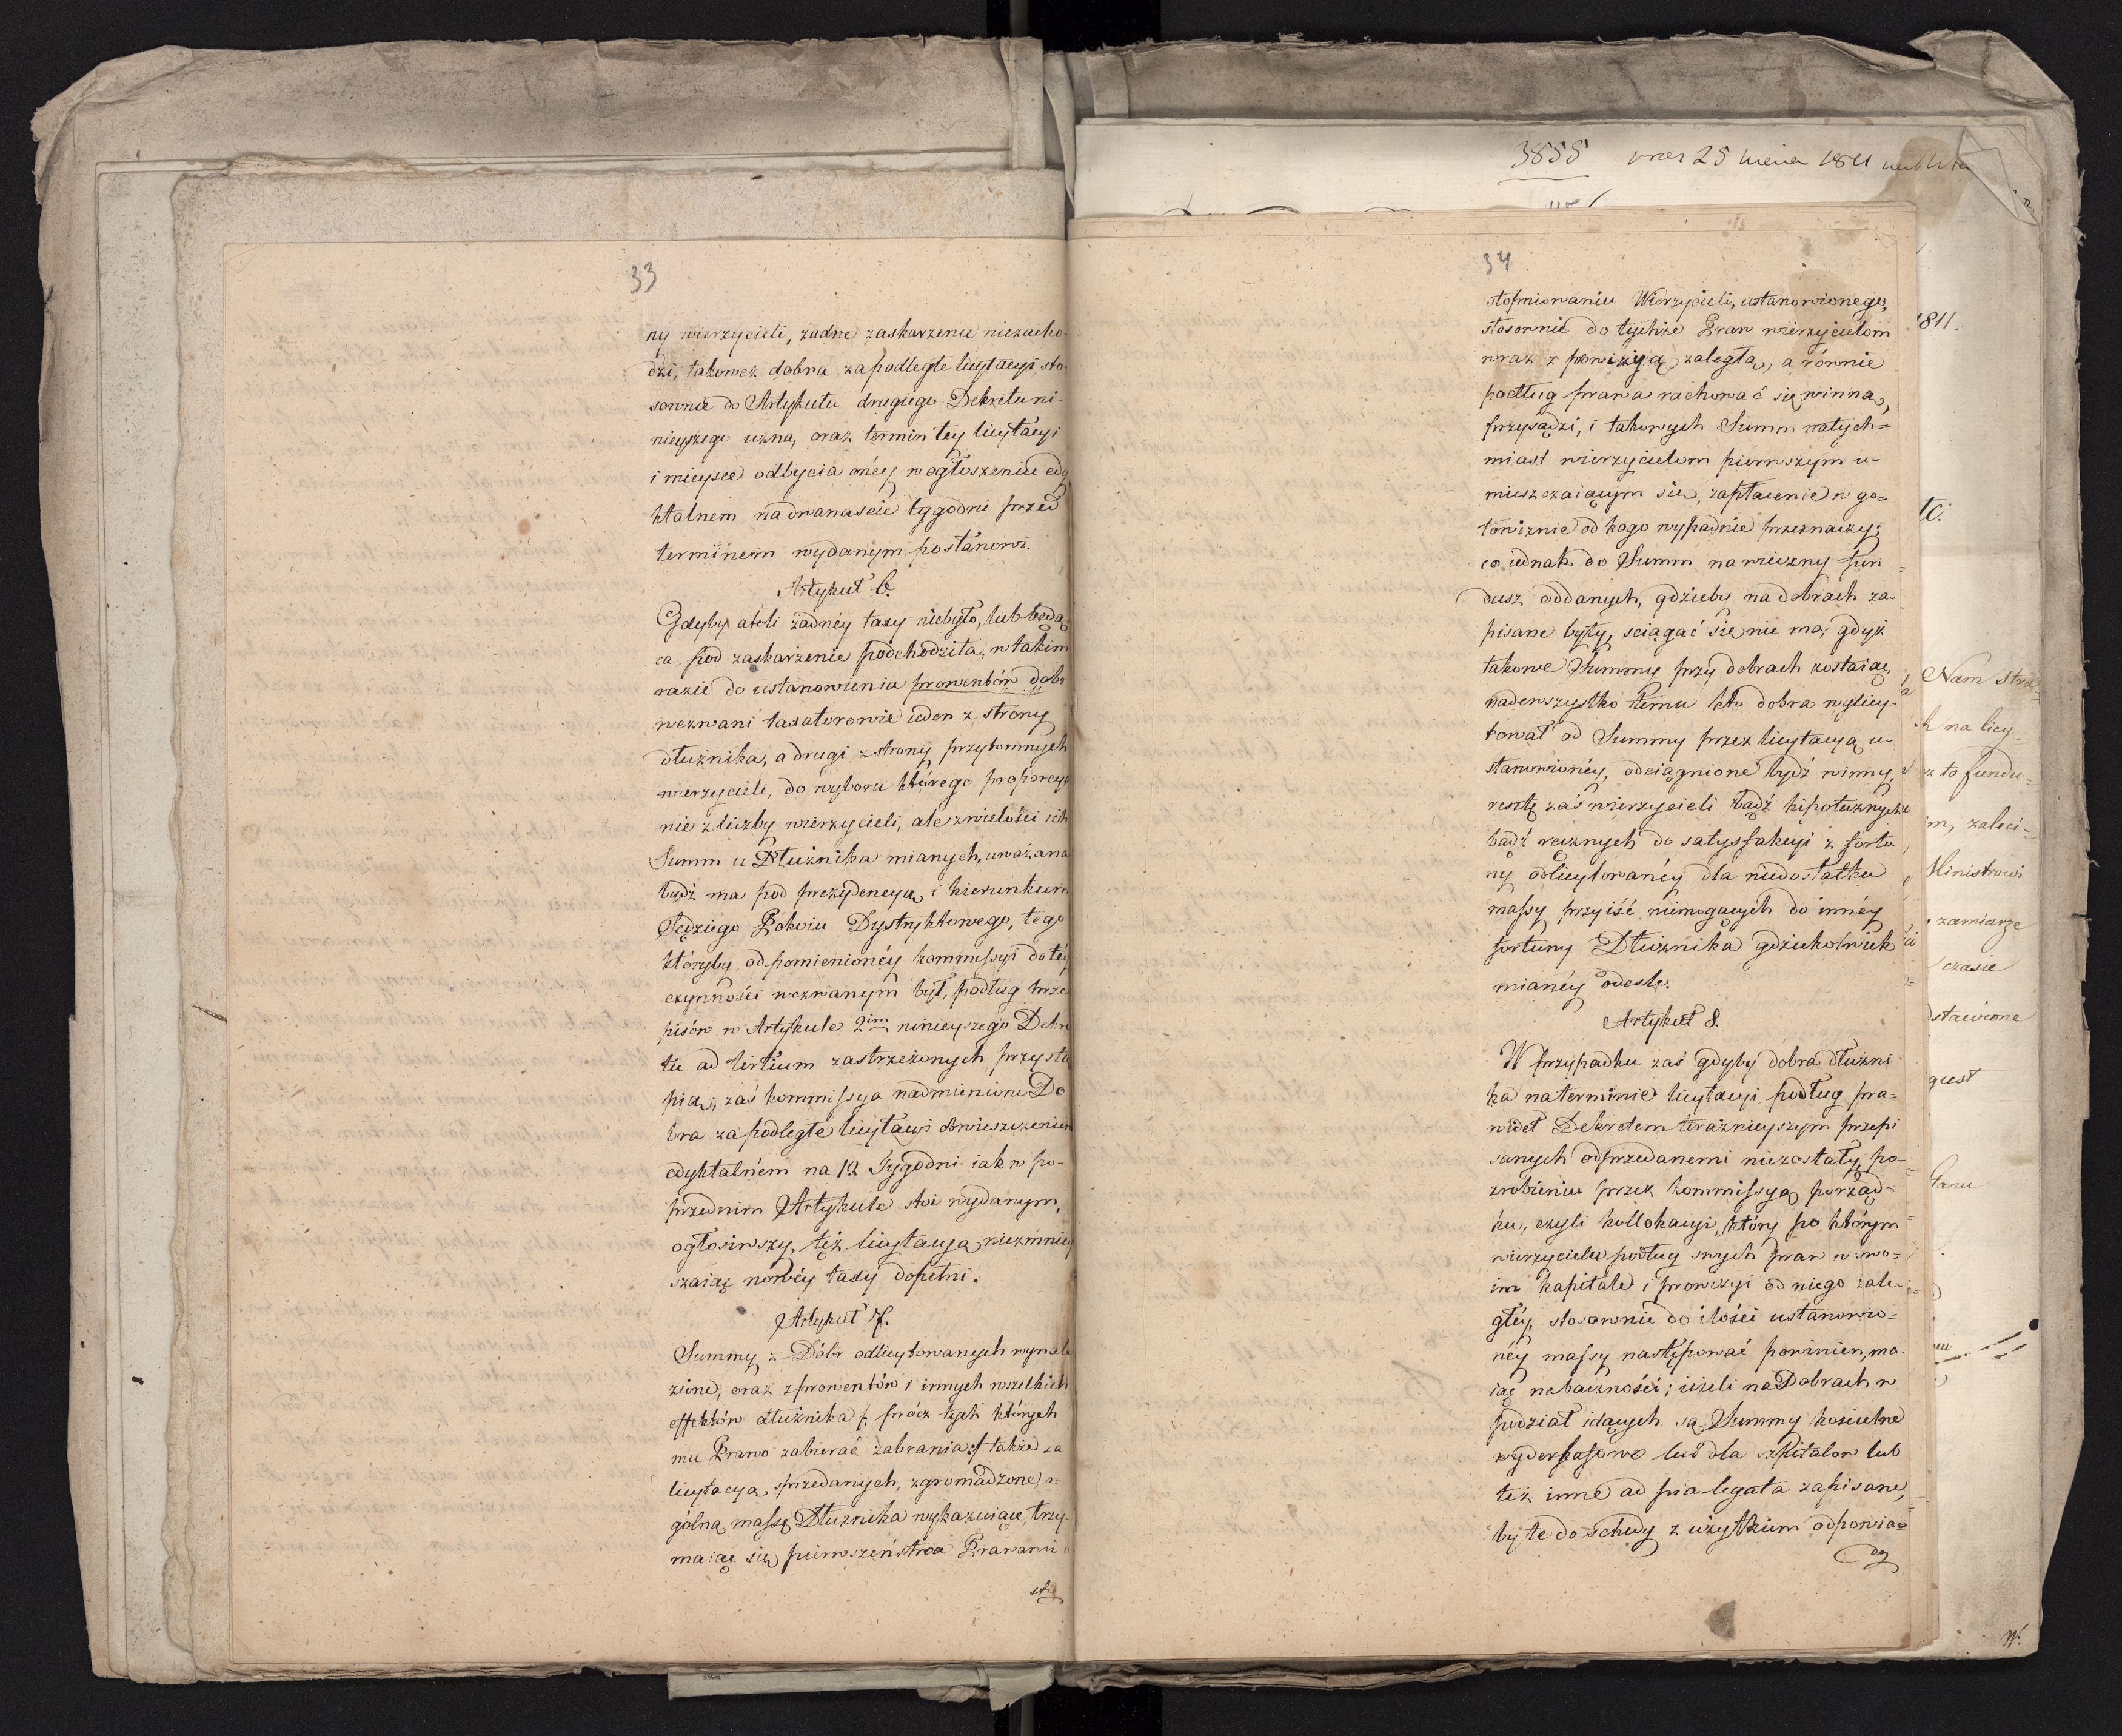 33
ny wierzycieli, żadne zaskarżenie niezacho-
dzi, takowez dobra zapodległe licytacyi sto-
sownie do Artykułu drugiego Dekretu ni-
nieyszego uzna, oraz termin tey licytacyi
i mieysce odbycia oney w ogłoszeniu edy
ktalnem na dwanaście tygodni przed
terminem wydanym postanowi.
Artykuł 6.
Gdyby atoli żadnéy taxy niebyło, lub będą-
ca pod zaskarżenie podchodziła, w takim
razie do ustanowienia prowentów dobr
wezwani taxatorowie ieden z strony
dłużnika, a drugi z strony przytomnych
wierzycieli, do wyboru którego proporcya
nie z liczby wierzycieli, ale z wielości ich
Summ u Dłużnika mianych, uważana
bydź ma pod prezydencyą i kierunkiem
Sędziego Pokoiu Dystryktowego, tego
któryby od pomienionéy kommissyi do téy
czynności wezwanym był, podług prze
pisów w Artykule 2im ninieyszego Dekre
tu ad tertium zastrzeżonych przystą
pią; zaś kommissya nadmienione Do
bra za podległe licytacyi obwieszczeniem
edyktalnem na 12 Tygodni iak w po-
przednim Artykule stoi wydanym,
ogłosiwszy, też licytacyą niezmniey
szaiąc nowéy taxy dopełni.
Artykuł 7.
Summy z Dóbr odlicytowanych wynale
zione, oraz z prowentów i innych wszelkich
effektów dłużnika /: prócz tych których
mu Prawo zabierać zabrania :/ także za
licytacyą sprzedanych, zgromadzone, o-
gólną massę Dłużnika wykazuiące, trzy-
maiąc się pierwszeństwa Prawami o
st
3855 25 1811
34
stopniowaniu Wierzycieli, ustanowionego,
stosownie do tychże Praw wierzycielom
wraz z prowizyą zaległą, a równie
podług prawa rachować się winną,
przysądzi, i takowych Summ natych=
miast wierzycielom pierwszym u-
mieszczaiącym się, zapłacenie w go=
towiznie od kogo wypadnie przeznaczy;
co iednak do Summ na wieczny fun
dusz oddanych, gdzieby na dobrach za-
pisane były, sciągać się nie ma, gdyż
takowe Summy przy dobrach zostaiąc,
nadewszystko temu kto dobra wylicy-
tował od Summy przez licytacyą u-
stanowionéy, odciągnione bydź winny,
resztę zaś wierzycieli bądź hipotecznych
bądź ręcznych do satysfakcyi z fortu
ny odlicytowanéy dla niedostatku
massy przyiść niemogących do innéy
fortuny Dłużnika gdziekolwiek
mianéy odeśle.
Artykuł 8.
W przypadku zaś gdyby dobra dłużni
ka na terminie licytacyi podług pra=
wideł Dekretem teraznieyszym przepi
sanych odprzedanemi niezostały, po-
zrobieniu przez kommissyą porząd-
ku, czyli kollokacyi, który po którym
wierzyciele podług swych praw w swo=
im kapitale i prowizyi od niego zale
głéy, stosownie do ilości ustanowio=
néy massy następować powinien, ma-
iąc na baczności; ieżeli na Dobrach w
podział idących są Summy kościelne
wyderkafowe lub dla szpitalow lub
też inne ad pia legata zapisane,
by te do schedy z użytkiem odpowia=
da
1811.
tc.
Nam stra-
h na licy-
z to fundu-
im, zaleci-
Ministrowi
zamiarze
czasie
dstawione
gust
łanu
W.